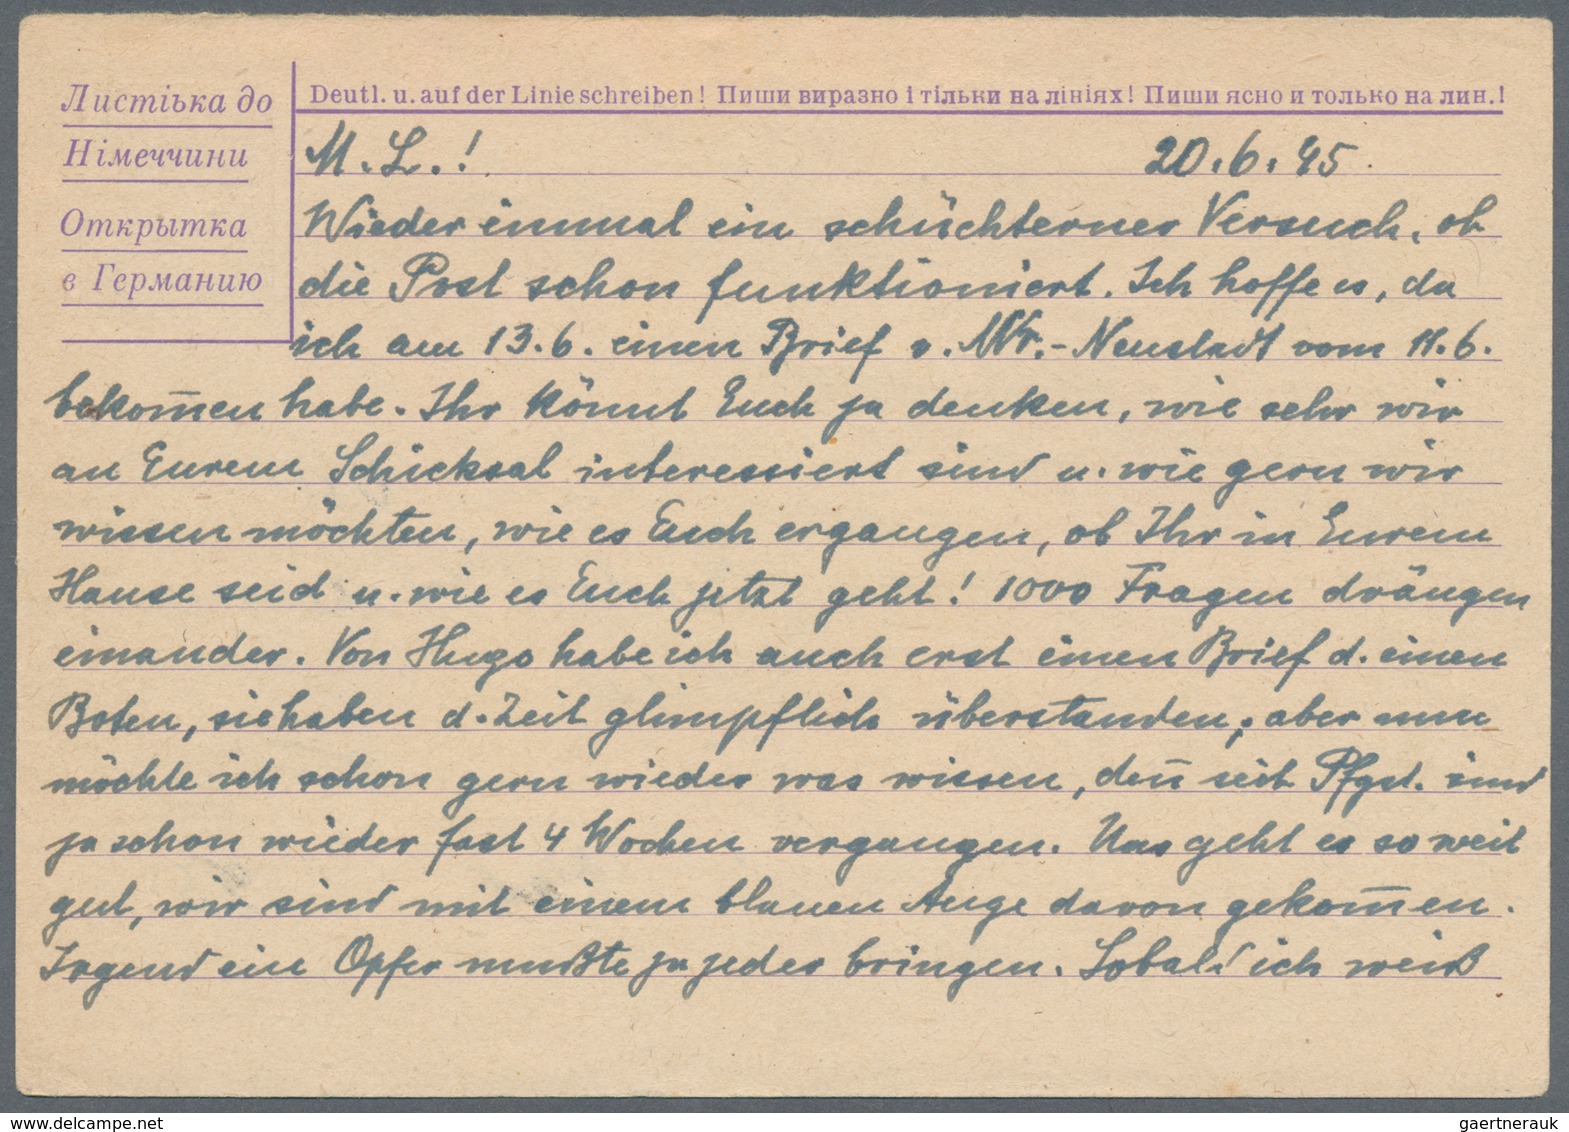 Листівка до
Німеччини
Открытка
в Германию
Deutl. u. auf der Linie schreiben! Пиши виразно і тільки на лініях! Пиши ясно и только на лин.!
M. L.! 20.6.45.
Wieder einmal ein schüchterner Versuch, ob
die Post schon funktioniert. Ich hoffe es, da
ich am 13.6. einen Brief v. Wr.-Neustadt vom 11.6.
bekom̄en habe. Ihr könnt Euch ja denken, wie sehr wir
an Eurem Schicksal interessiert sind u. wie gern wir
wissen möchten, wie es Euch ergangen, ob Ihr in Eurem
Hause seid u. wie es Euch jetzt geht! 1000 Fragen drängen
einander. Von Hugo habe ich auch erst einen Brief d. einen
Boten, sie haben d. Zeit glimpflich überstanden, aber nun
möchte ich schon gern wieder was wissen, den̄ seit Pfgst. sind
ja schon wieder fast 4 Wochen vergangen. Uns geht es so weit
gut, wir sind mit einem blauen Auge davon gekom̄en.
Irgend ein Opfer mußte ja jeder bringen. Sobald ich weiß
www.delcampe.net
gaertnerauk